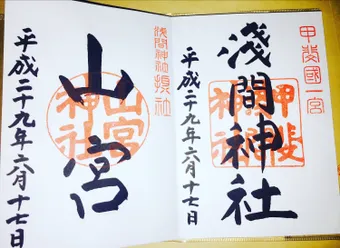 甲斐國一宮
淺間神社
平成二十九年六月十七日
淺間神社摂社
山宮
山宮神社
平成二十九年六月十七日